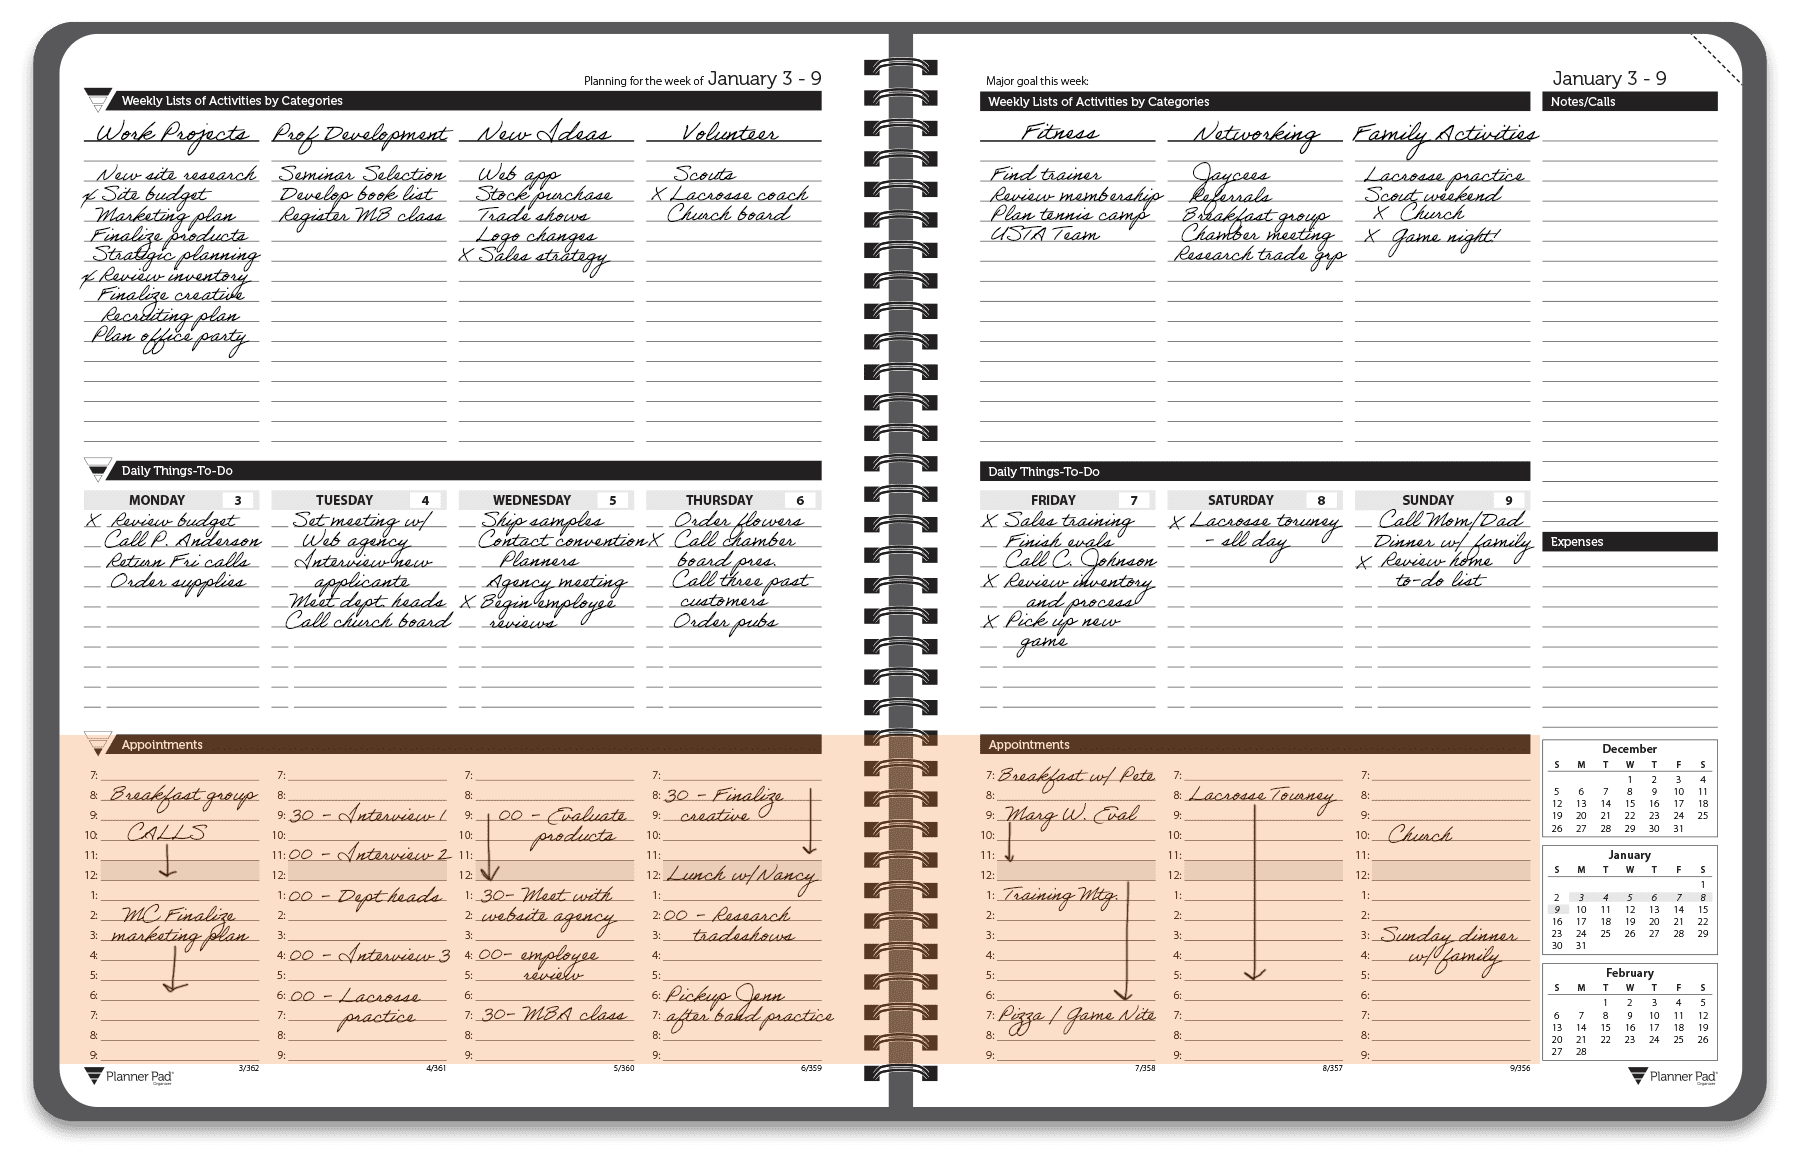 Planning for the week of January 3 - 9
Weekly Lists of Activities by Categories
Work Projects
New site research
x Site budget
Marketing plan
Finalize products
Strategic planning
x Review inventory
Finalize creative
Recruiting plan
Plan office party
Prof Development
Seminar Selection
Develop book list
Register MB class
New Ideas
Web app
Stock purchase
Trade shows
Logo changes
X Sales strategy
Volunteer
Scouts
X Lacrosse coach
Church board
Daily Things-To-Do
MONDAY 3
X Review budget
Call P. Anderson
Return Fri calls
Order supplies
TUESDAY 4
Set meeting w/
Web agency
Interview new
applicants
Meet dept. heads
Call church board
WEDNESDAY 5
Ship samples
Contact convention
Planners
Agency meeting
X Begin employee
reviews
THURSDAY 6
Order flowers
X Call chamber
board pres.
Call three past
customers
Order pubs
Appointments
7:
8: Breakfast group
9:
10: CALLS
11:
12:
1:
2: MC Finalize
3: marketing plan
4:
5:
6:
7:
8:
9:
3/362
7:
8:
9: 30 - Interview 1
10:
11: 00 - Interview 2
12:
1: 00 - Dept heads
2:
3:
4: 00 - Interview 3
5:
6: 00 - Lacrosse
7: practice
8:
9:
4/361
7:
8:
9: 00 - Evaluate
10: products
11:
12:
1: 30- Meet with
2: website agency
3:
4: 00- employee
5: review
6:
7: 30- MBA class
8:
9:
5/360
7:
8: 30 - Finalize
9: creative
10:
11:
12: Lunch w/Nancy
1:
2: 00 - Research
3: tradeshows
4:
5:
6: Pickup Jenn
7: after band practice
8:
9:
6/359
Planner Pad®
Organizer
Major goal this week:
January 3 - 9
Weekly Lists of Activities by Categories
Fitness
Find trainer
Review membership
Plan tennis camp
USTA Team
Networking
Jaycees
Referrals
Breakfast group
Chamber meeting
Research trade grp
Family Activities
Lacrosse practice
Scout weekend
X Church
X Game night!
Notes/Calls
Daily Things-To-Do
FRIDAY 7
X Sales training
Finish evals
Call C. Johnson
X Review inventory
and process
X Pick up new
game
SATURDAY 8
X Lacrosse toruney
- sll day
SUNDAY 9
Call Mom/Dad
Dinner w/ family
X Review home
to-do list
Expenses
Appointments
7: Breakfast w/ Pete
8:
9: Marg W. Eval
10:
11:
12:
1: Training Mtg.
2:
3:
4:
5:
6:
7: Pizza / Game Nite
8:
9:
7/358
7:
8: Lacrosse Tourney
9:
10:
11:
12:
1:
2:
3:
4:
5:
6:
7:
8:
9:
8/357
7:
8:
9:
10: Church
11:
12:
1:
2:
3: Sunday dinner
4: w/ family
5:
6:
7:
8:
9:
9/356
December
S M T W T F S
1 2 3 4
5 6 7 8 9 10 11
12 13 14 15 16 17 18
19 20 21 22 23 24 25
26 27 28 29 30 31
January
S M T W T F S
1
2 3 4 5 6 7 8
9 10 11 12 13 14 15
16 17 18 19 20 21 22
23 24 25 26 27 28 29
30 31
February
S M T W T F S
1 2 3 4 5
6 7 8 9 10 11 12
13 14 15 16 17 18 19
20 21 22 23 24 25 26
27 28
Planner Pad®
Organizer